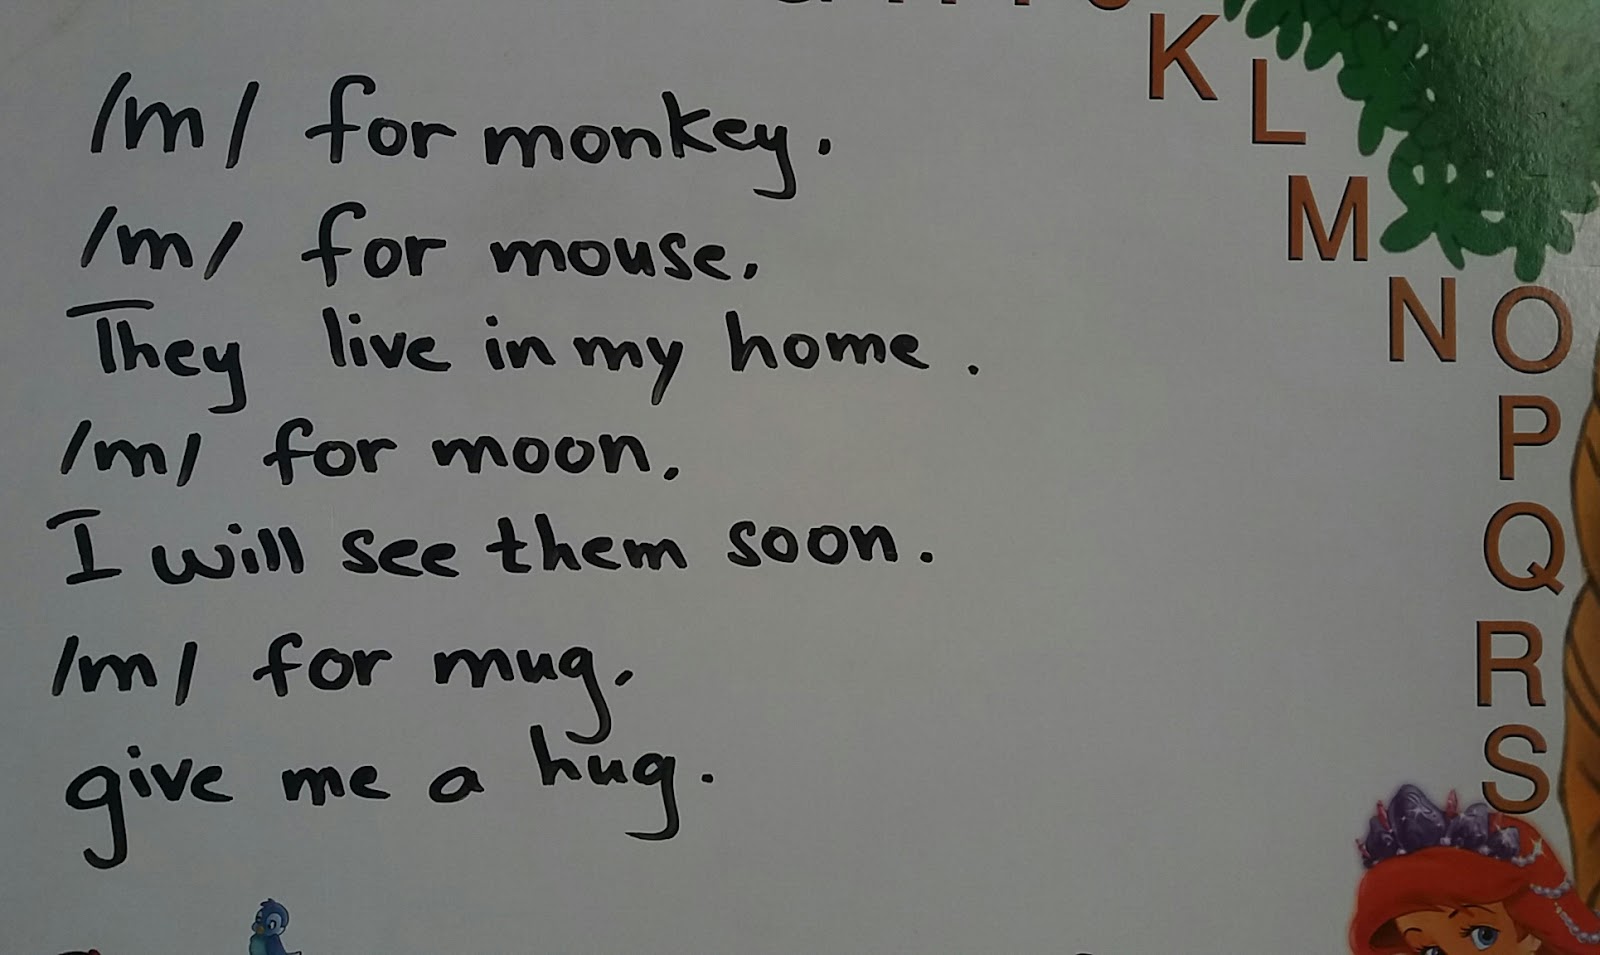 /m/ for monkey.
/m/ for mouse.
They live in my home.
/m/ for moon.
I will see them soon.
/m/ for mug.
give me a hug.
K
L
M
N O
P
Q
R
S